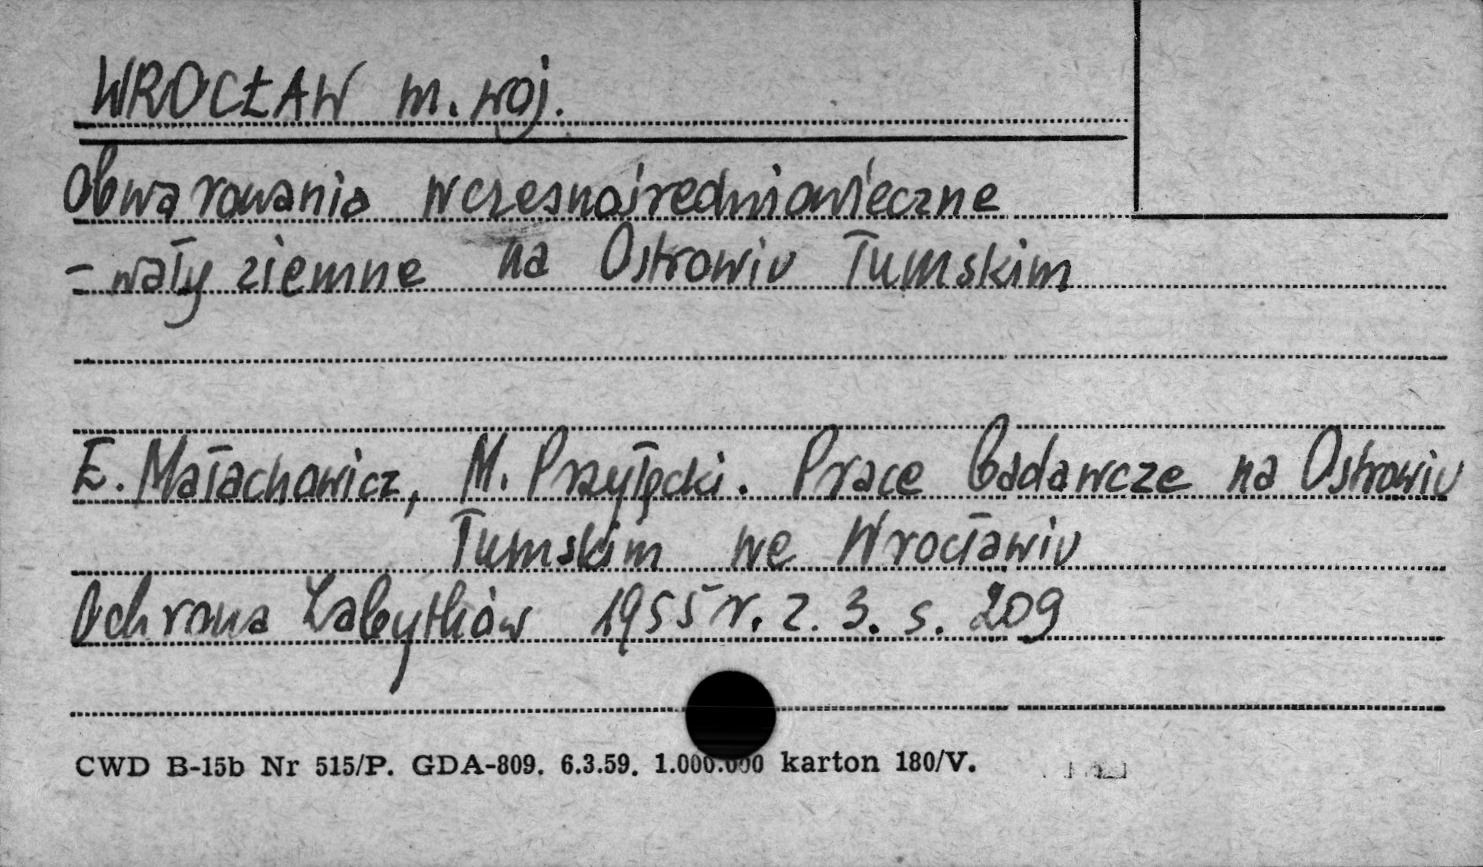 WROCŁAW m. woj.
Obwarowania wczesnośredniowieczne
- wały ziemne na Ostrowiu Tumskim
E. Małachowicz, M. Przyłęcki. Prace badawcze na Ostrowiu
Tumskim we Wrocławiu
Ochrona Zabytków 1955 r. z. 3. s. 209
CWD B-15b Nr 515/P. GDA-809. 6.3.59. 1.000.000 karton 180/V.